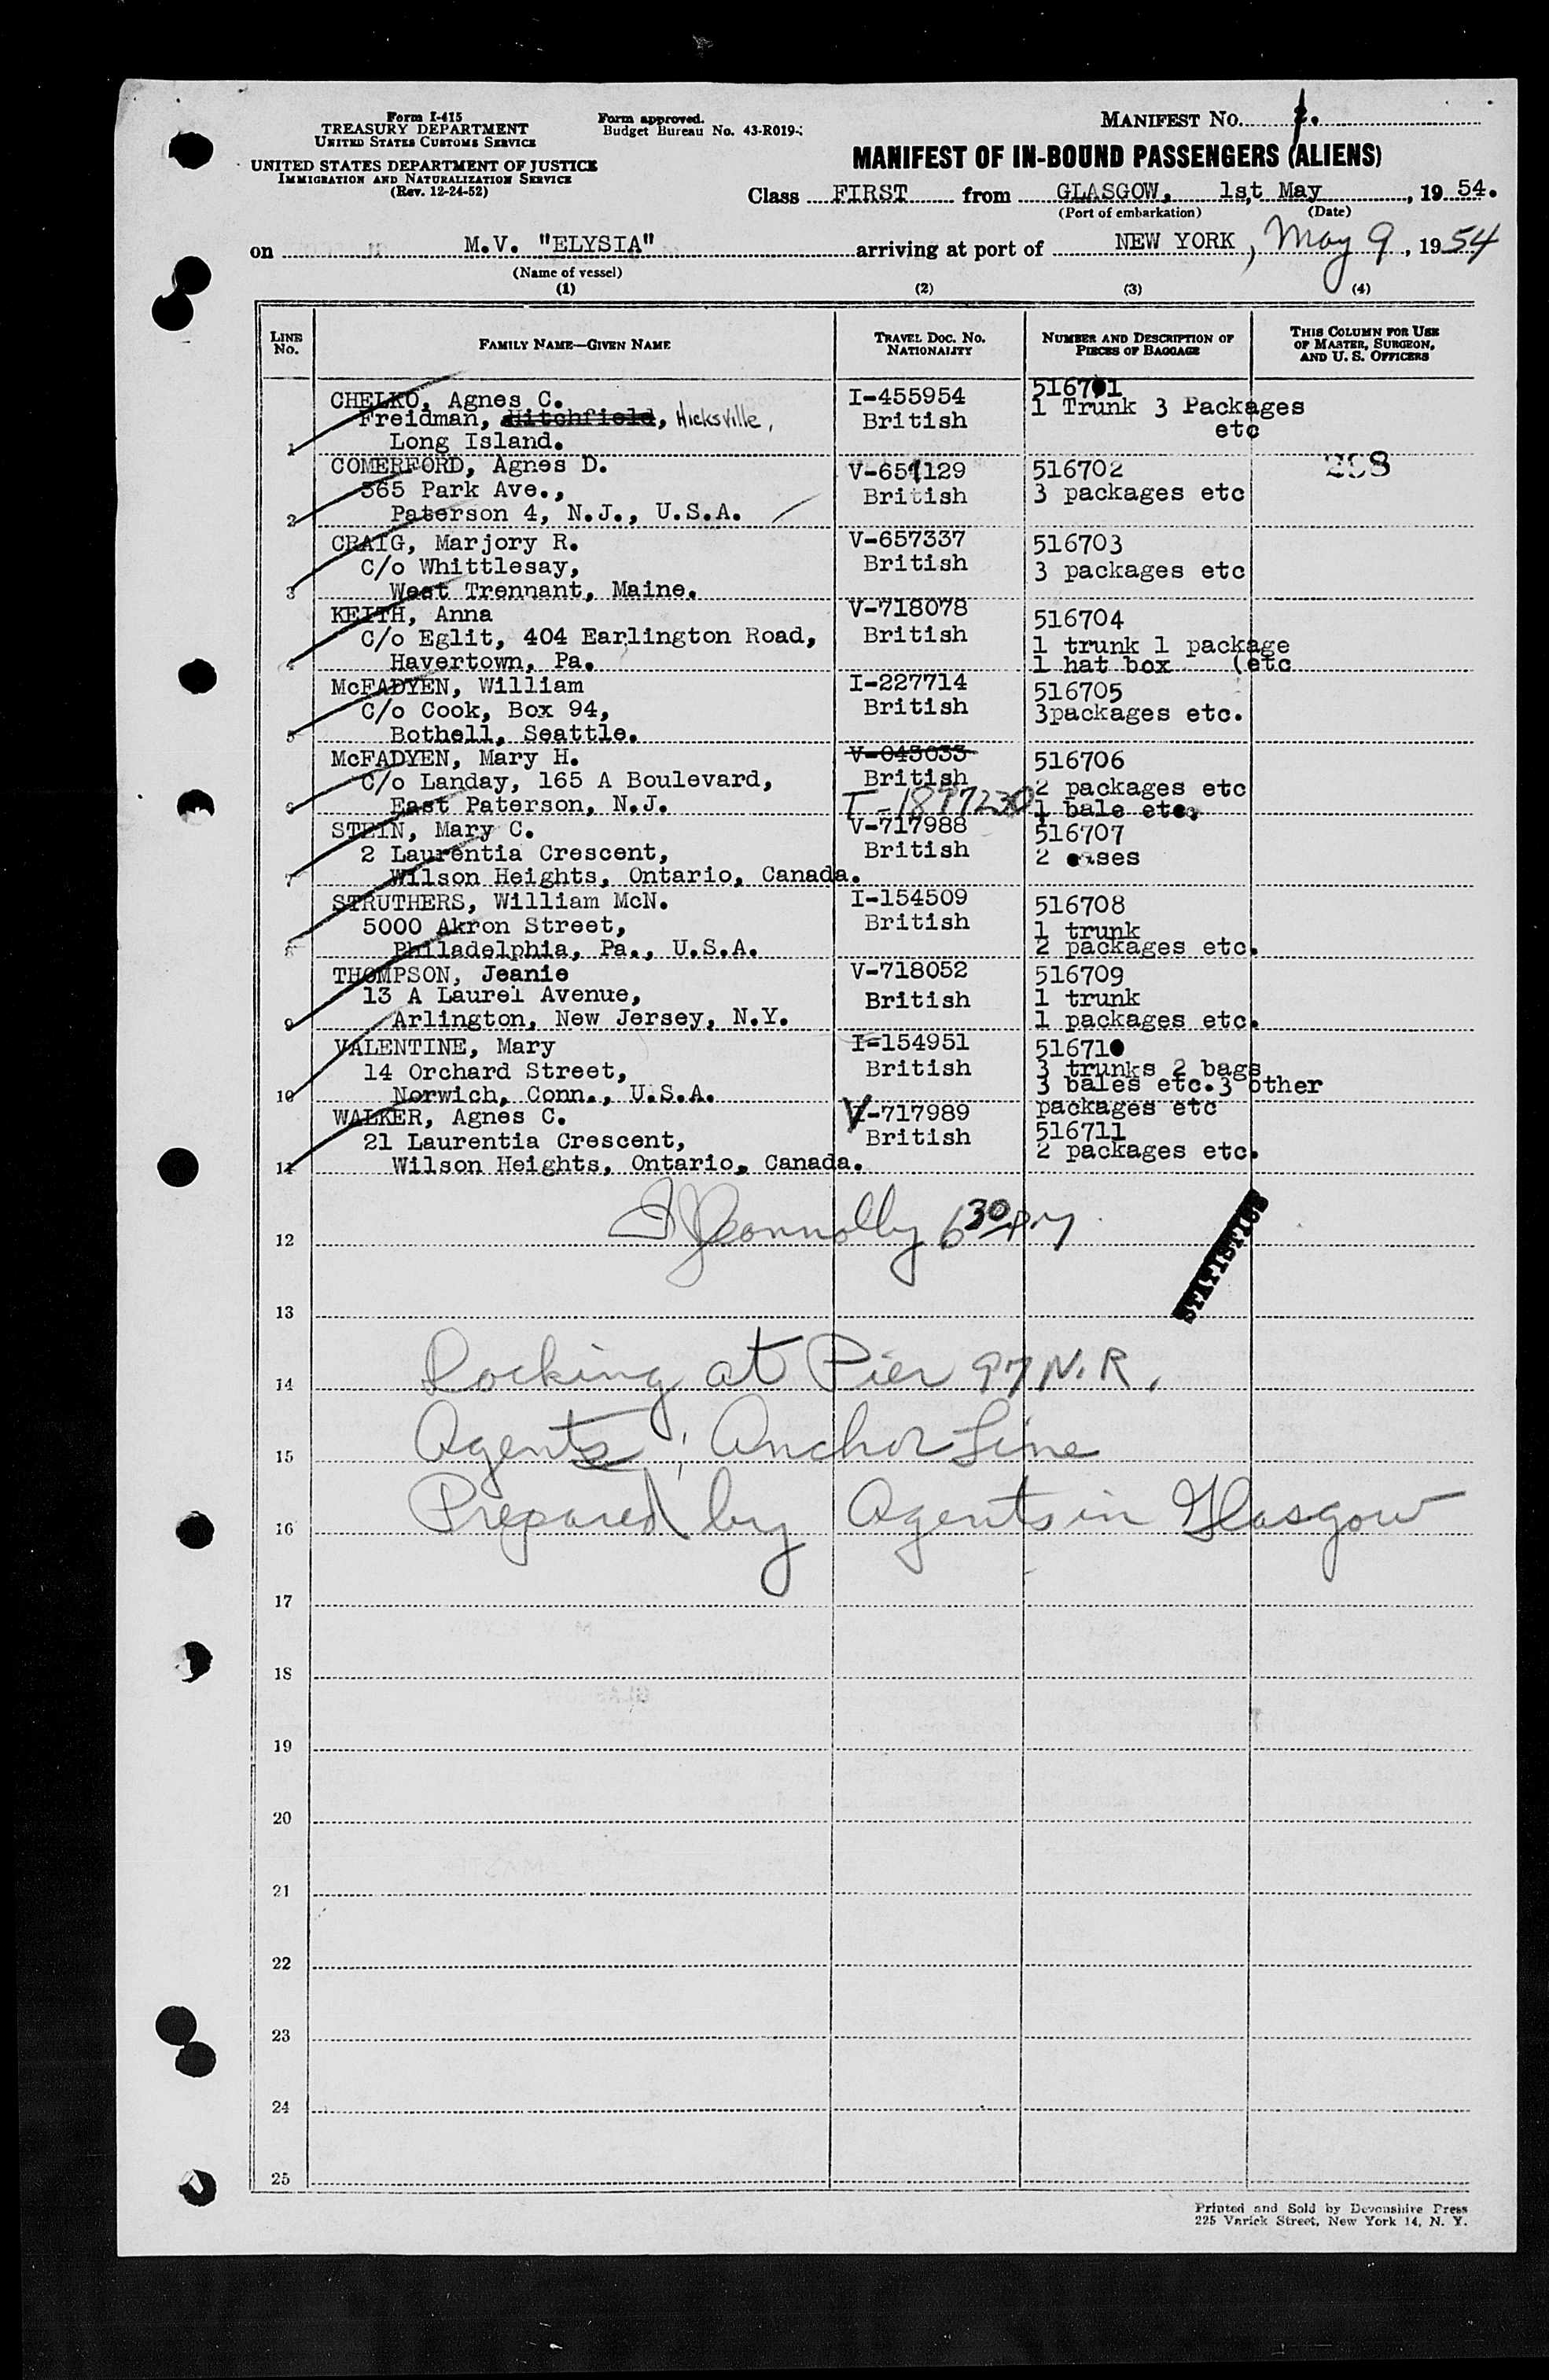 Form I-415
TREASURY DEPARTMENT
UNITED STATES CUSTOMS SERVICE
UNITED STATES DEPARTMENT OF JUSTICE
IMMIGRATION AND NATURALIZATION SERVICE
(Rev. 12-24-52)
Form approved.
Budget Bureau No. 43-R019-
MANIFEST NO.
MANIFEST OF IN-BOUND PASSENGERS (ALIENS)
Class FIRST from GLASGOW, 1st May, 1954.
(Port of embarkation) (Date)
on M.V. "ELYSIA" arriving at port of NEW YORK, May 9, 1954
(Name of vessel)
(1) (2) (3) (4)
LINE No. FAMILY NAME—GIVEN NAME TRAVEL DOC. NO. NATIONALITY NUMBER AND DESCRIPTION OF PIECES OF BAGGAGE THIS COLUMN FOR USE OF MASTER, SURGEON, AND U. S. OFFICERS
CHELKO, Agnes C. I-455954 516701
Freidman, Hitchfield, Hicksville, British 1 Trunk 3 Packages
1 Long Island. etc
COMERFORD, Agnes D. V-651129 516702 298
365 Park Ave., British 3 packages etc
2 Paterson 4, N.J., U.S.A.
CRAIG, Marjory R. V-657337 516703
C/o Whittlesay, British 3 packages etc
3 West Trennant, Maine.
KEITH, Anna V-718078 516704
C/o Eglit, 404 Earlington Road, British 1 trunk 1 package
4 Havertown, Pa. 1 hat box (etc
McFADYEN, William I-227714 516705
C/o Cook, Box 94, British 3packages etc.
5 Bothell, Seattle.
McFADYEN, Mary H. V-043033 516706
C/o Landay, 165 A Boulevard, British 2 packages etc
6 East Paterson, N.J. I-1897230 1 bale etc.
STEIN, Mary C. V-717988 516707
2 Laurentia Crescent, British 2 cases
7 Wilson Heights, Ontario, Canada.
STRUTHERS, William McN. I-154509 516708
5000 Akron Street, British 1 trunk
8 Philadelphia, Pa., U.S.A. 2 packages etc.
THOMPSON, Jeanie V-718052 516709
13 A Laurel Avenue, British 1 trunk
9 Arlington, New Jersey, N.Y. 1 packages etc.
VALENTINE, Mary I-154951 516710
14 Orchard Street, British 3 trunks 2 bags
10 Norwich, Conn., U.S.A. 3 bales etc. 3 other
packages etc
WALKER, Agnes C. V-717989 516711
21 Laurentia Crescent, British 2 packages etc.
11 Wilson Heights, Ontario, Canada.
12 Connolly 6 30 PM
STATISTICS
13
14 Docking at Pier 97 N.R.
15 Agents: Anchor Line
16 Prepared by Agents in Glasgow
17
18
19
20
21
22
23
24
25
Printed and Sold by Devonshire Press
225 Varick Street, New York 14, N. Y.